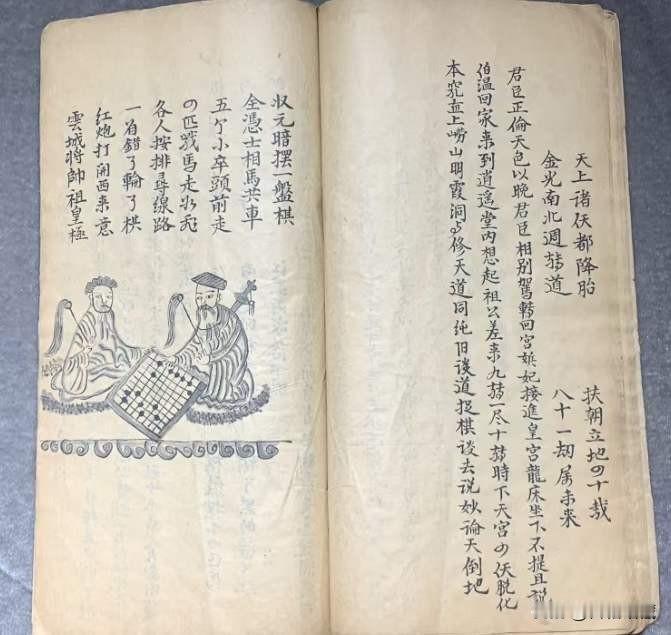 天上诸仸都降胎　扶朝立地の十哉
金光南北週转道　八十一刼属未来
君臣正倫天色以晚君臣相别駕轉回宮嫔妃接進皇宮龍床坐下不提且説
伯温回家来到逍遥堂内想起祖公差来九转一尽十转時下天宮の仸脱化
本究血上崂山明霞洞与修天道同纯旧谈道捉棋谈去说妙論天倒地
状元暗摆一盤棋
全憑士相馬共車
五个小卒頭前走
の匹戰馬走如飛
各人按排尋線路
一着錯了輪了棋
红炮打開西来意
雲城將帥祖皇極